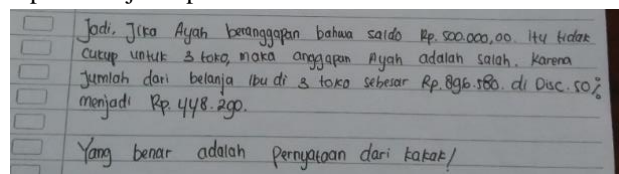 Jadi, Jika Ayah beranggapan bahwa saldo Rp. 500.000,00. itu tidak
cukup untuk 3 toko, maka anggapan Ayah adalah salah. Karena
Jumlah dari belanja Ibu di 3 toko sebesar Rp. 896.580. di Disc. 50%
menjadi Rp. 448.290.
Yang benar adalah Pernyataan dari kakak!